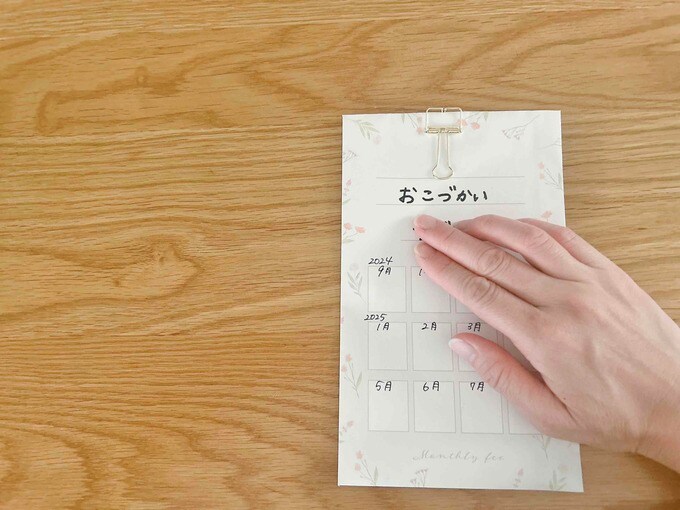 おこづかい
2024
9月
2025
1月 2月 3月
5月 6月 7月
Monthly fee